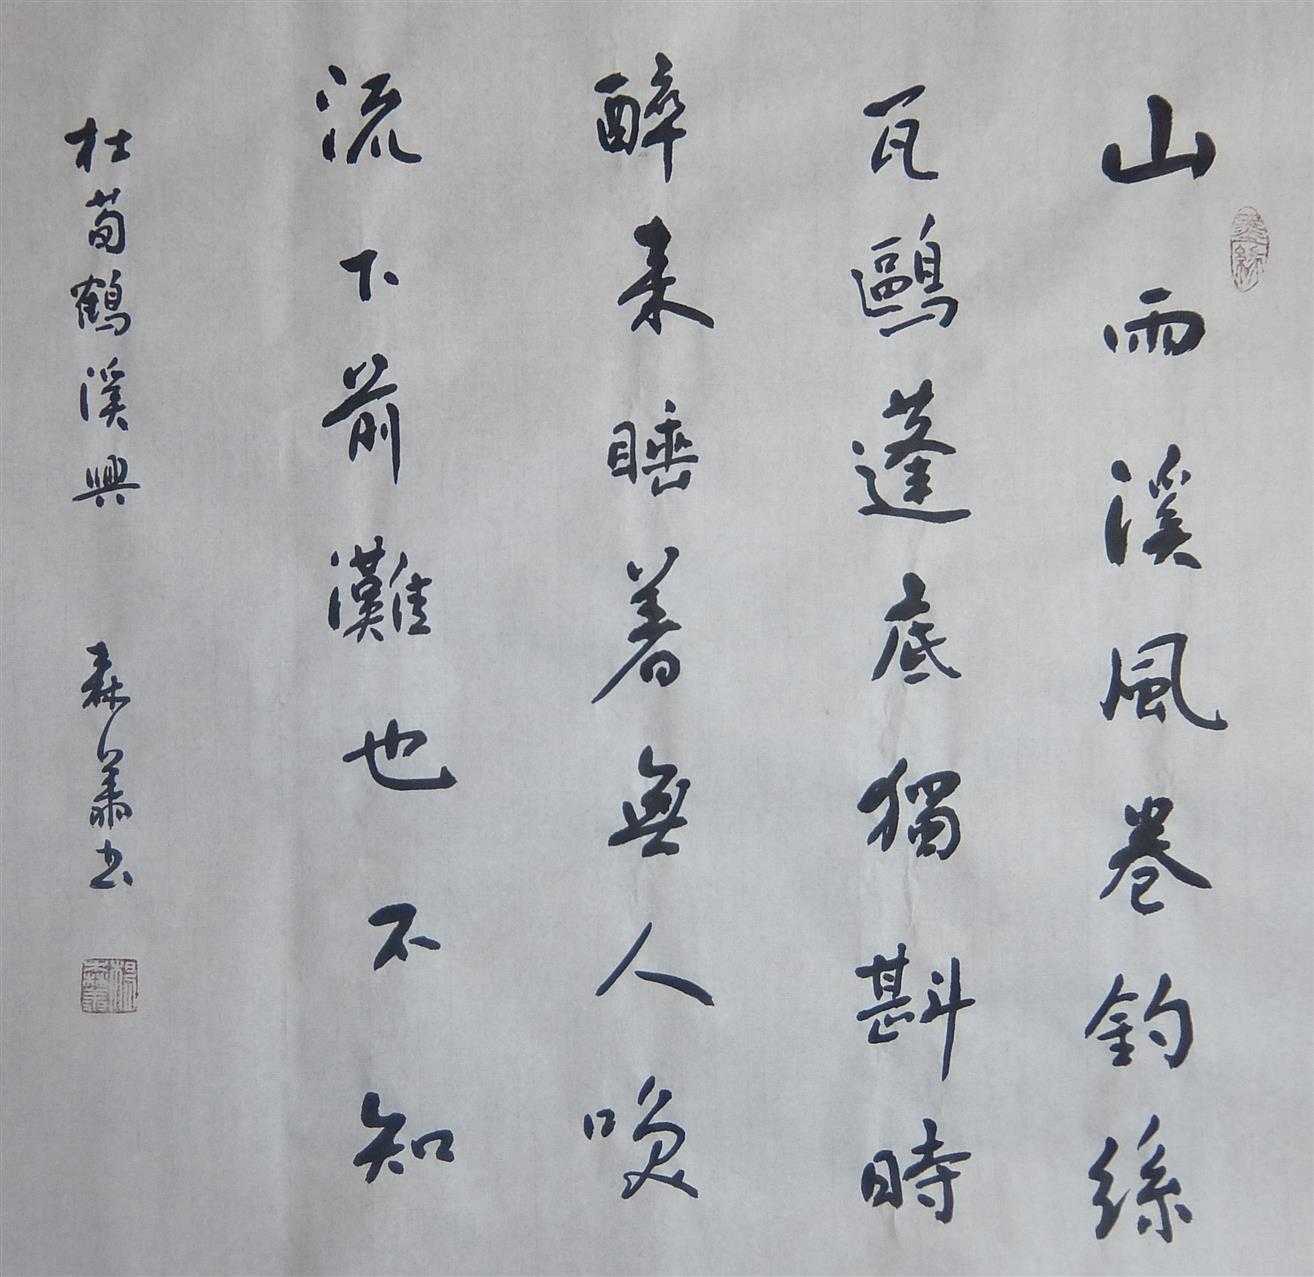 山雨溪風卷釣絲
瓦鷗蓬底獨斟時
醉来睡着無人喚
流下前灘也不知
杜荀鶴溪興
森華书